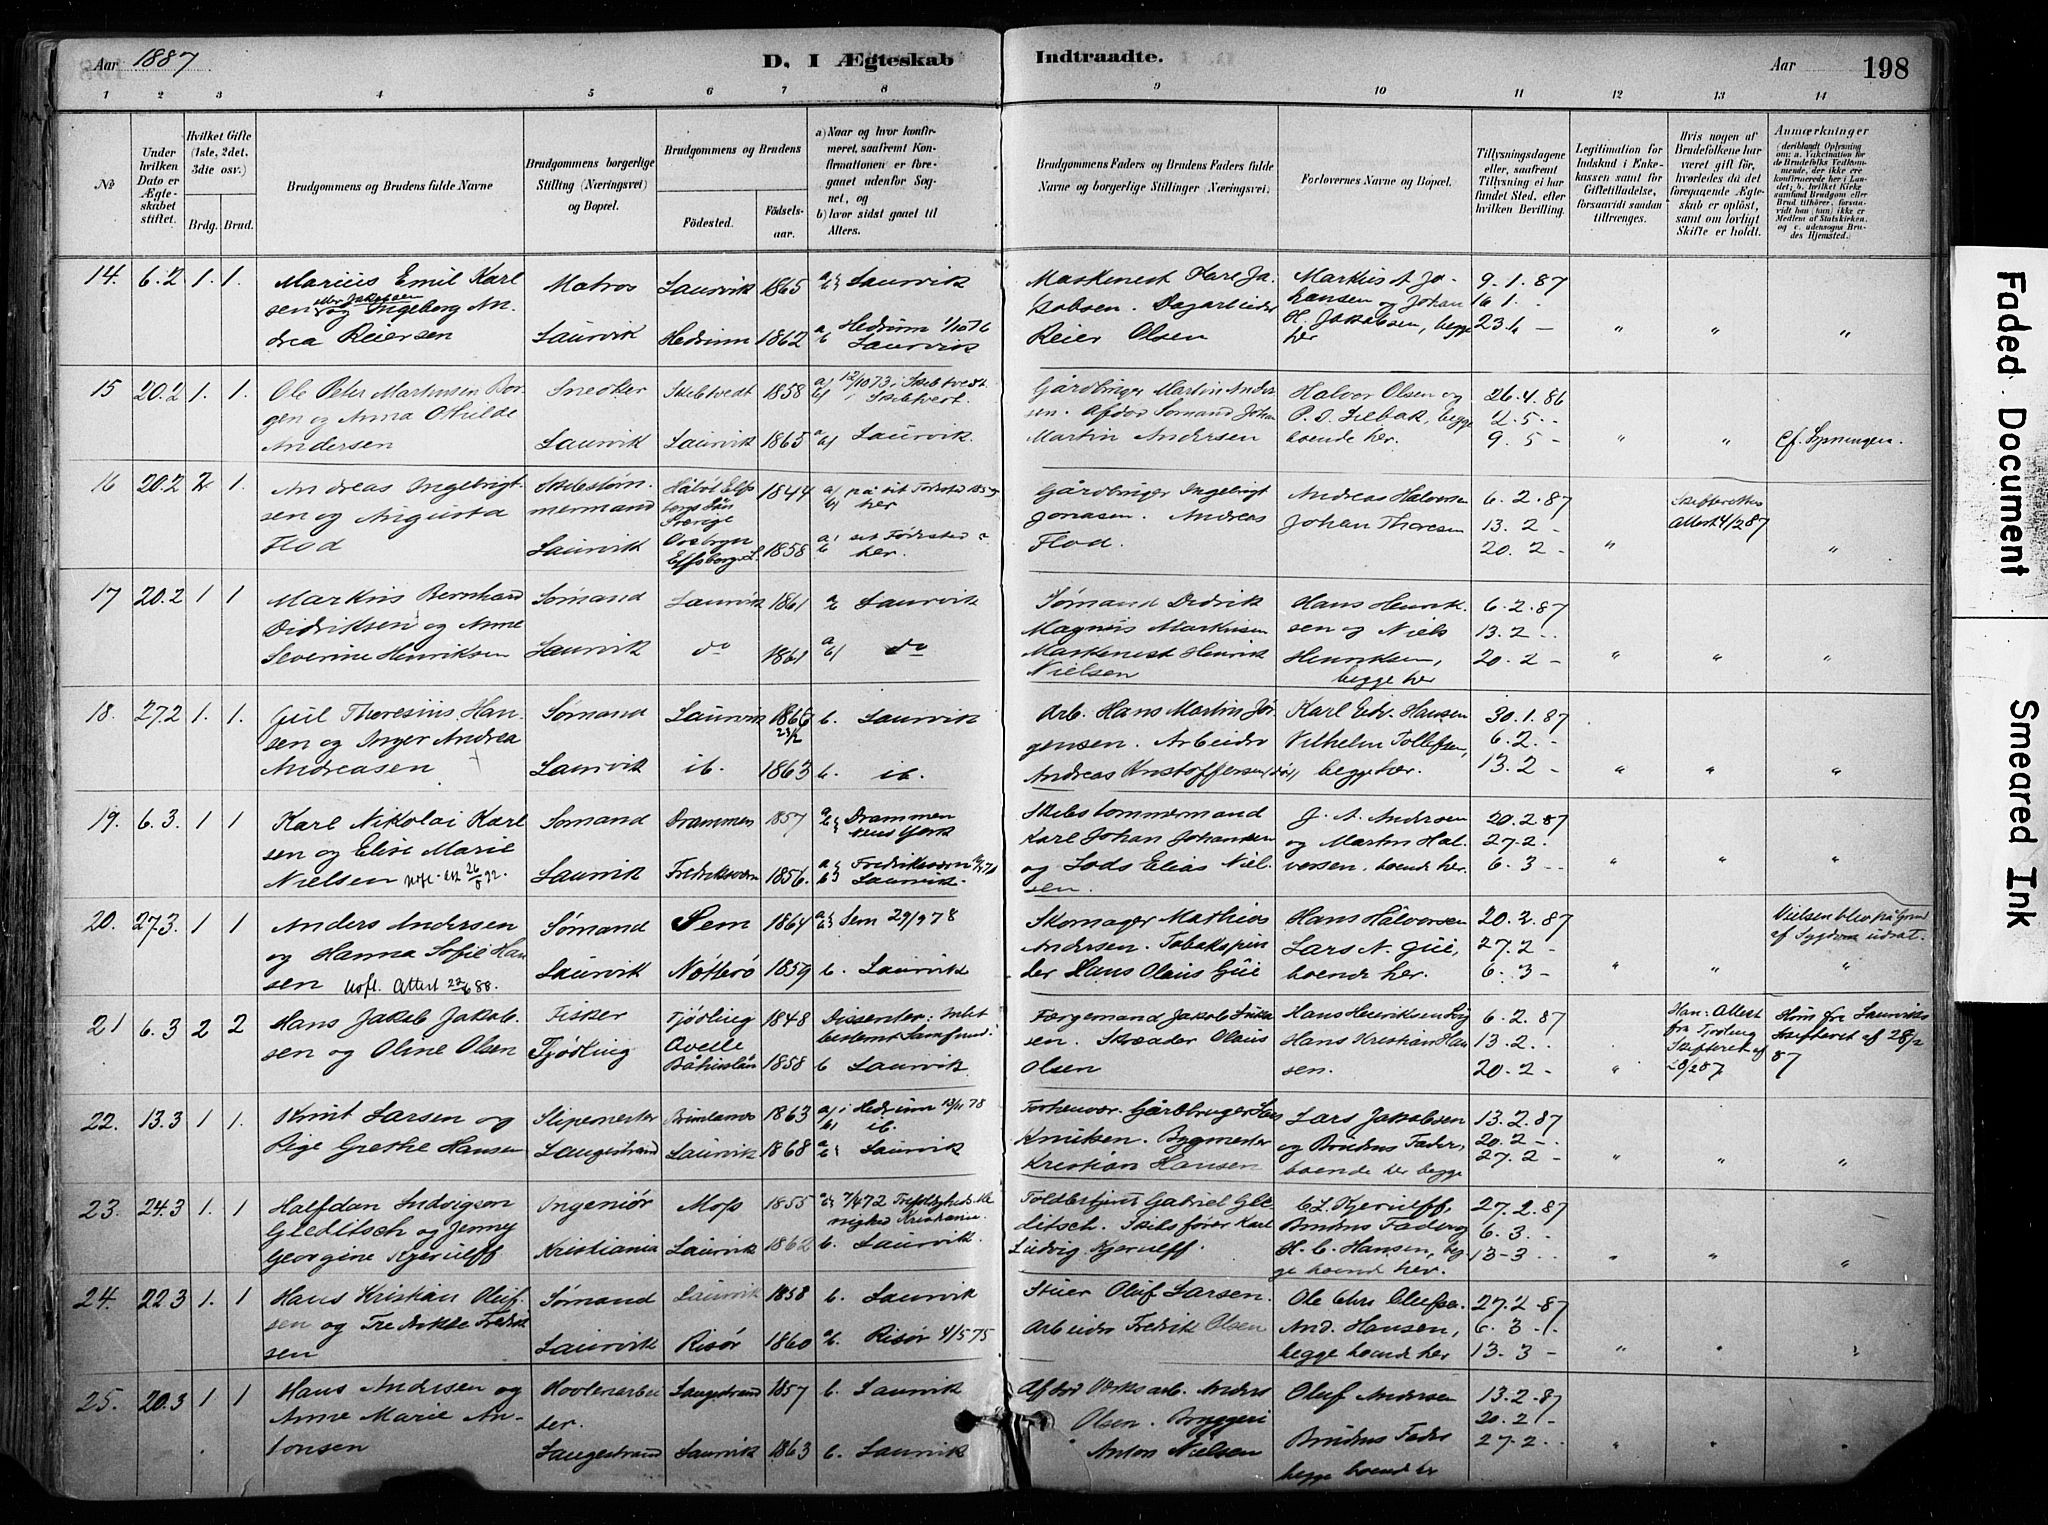 Aar 1887
D. I Ægteskab Indtraadte.
Aar 198
1 2 3 4 5 6 7 8 9 10 11 12 13 14
№
Under hvilken Dato er Ægteskabet stiftet.
Hvilket Gifte (1ste, 2det, 3die osv.)
Brdg. Brud.
Brudgommens og Brudens fulde Navne
Brudgommens borgerlige Stilling (Næringsvei) og Bopæl.
Brudgommens og Brudens
Fødested.
Fødselsaar.
a) Naar og hvor konfirmeret, saafremt Konfirmationen er foregaaet udenfor Sognet, og
b) hvor sidst gaaet til Alters.
Brudgommens Faders og Brudens Faders fulde Navne og borgerlige Stillinger (Næringsvei).
Forlovernes Navne og Bopæl.
Tillysningsdagene eller, saafremt Tillysning ei har fundet Sted, efter hvilken Bevilling.
Legitimation for Indskud i Enkekassen samt for Giftetilladelse, forsaavidt saadan tiltrænges.
Hvis nogen af Brudefolkene har været gift før, hvorledes da det foregaaende Ægteskab er opløst, samt om lovligt Skifte er holdt.
Anmærkninger (deriblandt Oplysning om: a. Vakcination for de Brudefolks Vedkommende, der ikke ere konfirmerede her i Landet; b. hvilket Kirkesamfund Brudgom eller Brud tilhører, forsaavidt han (hun) ikke er Medlem af Statskirken, og c. udensogns Brudes Hjemsted.)
14. 6.2 1. 1. Marius Emil Karlsen og Ingeborg Andrea Reiersen
Matros Laurvik
Laurvik 1865 Laurvik
Hedrum 1862 a Hedrum 1/10 76 b Laurvik
Maskenest Karl Jakobsen. Dagarbeider Reier Olsen
Markus A Johansen og Johan H. Jakobsen, begge her
9.1.87
16 1 -
23.1 -
15 20.2 1. 1. Ole Peter Martinsen Borgen og Anna Othilde Andersen
Snedker Laurvik
Skibtvedt 1858 a/ 12/10 73 i Skibtvedt
Laurvik 1865 Laurvik.
Gårdbruger Martin Andersen. Afdød Sømand Johan Martin Andersen
Halvor Olsen og P. O. Lilbak, begge boende her.
26.4.86
2.5.-
9.5 -
16 20.2 2 1. Andreas Ingebrigtsen og Augusta Flod
Skibstømmermand Laurvik
Sverige 1844 på sit Fødested her
Elfsborgs L. 1858 sit Fødested her.
Gårdbruger Ingebrigt Jonasen. Andreas Flod.
Andreas Halvorsen Johan Thoresen
6.2.87
13.2 -
20.2 -
Skifteretten Attest 4/2 87
17 20.2 1 1 Markus Bernhard Didriksen og Anne Severine Henriksen
Sømand Laurvik
Laurvik 1861 Laurvik
do 1861 do
Sømand Didrik Magnus Markusen Maskenest Henrik Nielsen
Hans Henriksen og Niels Henriksen, begge her
6.2.87
13.2 -
20.2 -
18. 27.2 1. 1. Juil Thoresius Hansen og Inger Andrea Andreasen
Sømand Laurvik
Laurvik b. Laurvik
ib. 1863 b. ib.
Arb. Hans Martin Jørgensen. Arbeider Andreas Kristoffersen (død)
Karl Edv. Hansen Vilhelm Tollefsen, begge her.
30.1.87
6.2.-
13.2 -
19. 6.3. 1 1 Karl Nikolai Karlsen og Elise Marie Nielsen
Sømand Laurvik
Drammen 1857 Drammen New York
Fredriksværn 1856. Fredriksværn Laurvik.
Skibstømmermand Karl Johan Johansen og Lods Elias Nielsen.
J. A. Andersen og Martin Halvorsen, boende her.
20.2.87
27.2.
6.3 -
20. 27.3. 1 1 Anders Andersen og Hanna Sofie Hansen
Sømand Laurvik
Sem 1864 Sem 29/9 78
Nøtterø 1859 b. Laurvik
Skomager Mathias Andersen. Tobakspinder Hans Olaus Gue
Hans Halvorsen Lars N. Gue, boende her.
20.2.87
27.2 -
6.3 -
Nielsen blev på Grund af Sygdom udsat.
21 6.3 2 2 Hans Jakob Jakobsen og Oline Olsen
Fisker Tjødling
Tjødling 1848 Dissenter: intet bestemt Samfund
Båhuslän 1858 b Laurvik
Færgemand Jakob Isaksen. Skræder Olaus Olsen
Hans Henriksen Hans Kristian Hansen.
6.2.87
13.2 -
20.2 -
Han: Attest fra Tjødling Skifteret af 28/2 87
Hun fra Laurviks Skifteret af 28/2 87
22. 13.3 1 1. Knut Larsen og Pige Grethe Hansen
Slipemester Langestrand
Brunlanes 1863 a/ i Hedrum b/ ib.
Laurvik 1868 Laurvik
Forhenvær. Gårdbruger Lars Knutsen. Bygmester Kristian Hansen
Lars Jakobsen og Brudens Fader, boende her begge
13.2.87
20.2 -
27.2 -
23. 24.3 1. 1 Halfdan Ludvigson Gleditsch og Jenny Georgine Kjerulff
Ingeniør Kristiania
Moss 1855 Trefoldigheds Menighed Kristiania.
Laurvik 1862 b. Laurvik.
Toldbetjent Gabriel Gleditsch. Skibsfører Karl Ludvig Kjerulff.
C. L. Kjerulff, Brudens Fader og H. C. Hansen, begge boende her.
27.2.87
6.3.-
13-3 -
24. 22.3 1. 1 Hans Kristian Olufsen og Fredrikke Fredriksen
Sømand Laurvik
Laurvik 1858 b. Laurvik
Risør 1860 Risør 4/5 75
Stuer Oluf Larsen. Arbeider Fredrik Olsen
Ole Chr. Olufsen And. Hansen, begge boende her
27.2 -87
6.3 -
13.3 -
25. 20.3 1 1 Hans Andersen og Anne Marie Antonsen
Hovlenarbeider. Langestrand
Langestrand 1857 b. Laurvik
Laurvik 1863 b. Laurvik
Afdød Værksarb. Anders Olsen. Bryggeri Anton Nielsen
Oluf Andersen Brudens Fader begge boende her
13.2.87
20.2 -
27.2 -
Faded Document
Smeared Ink